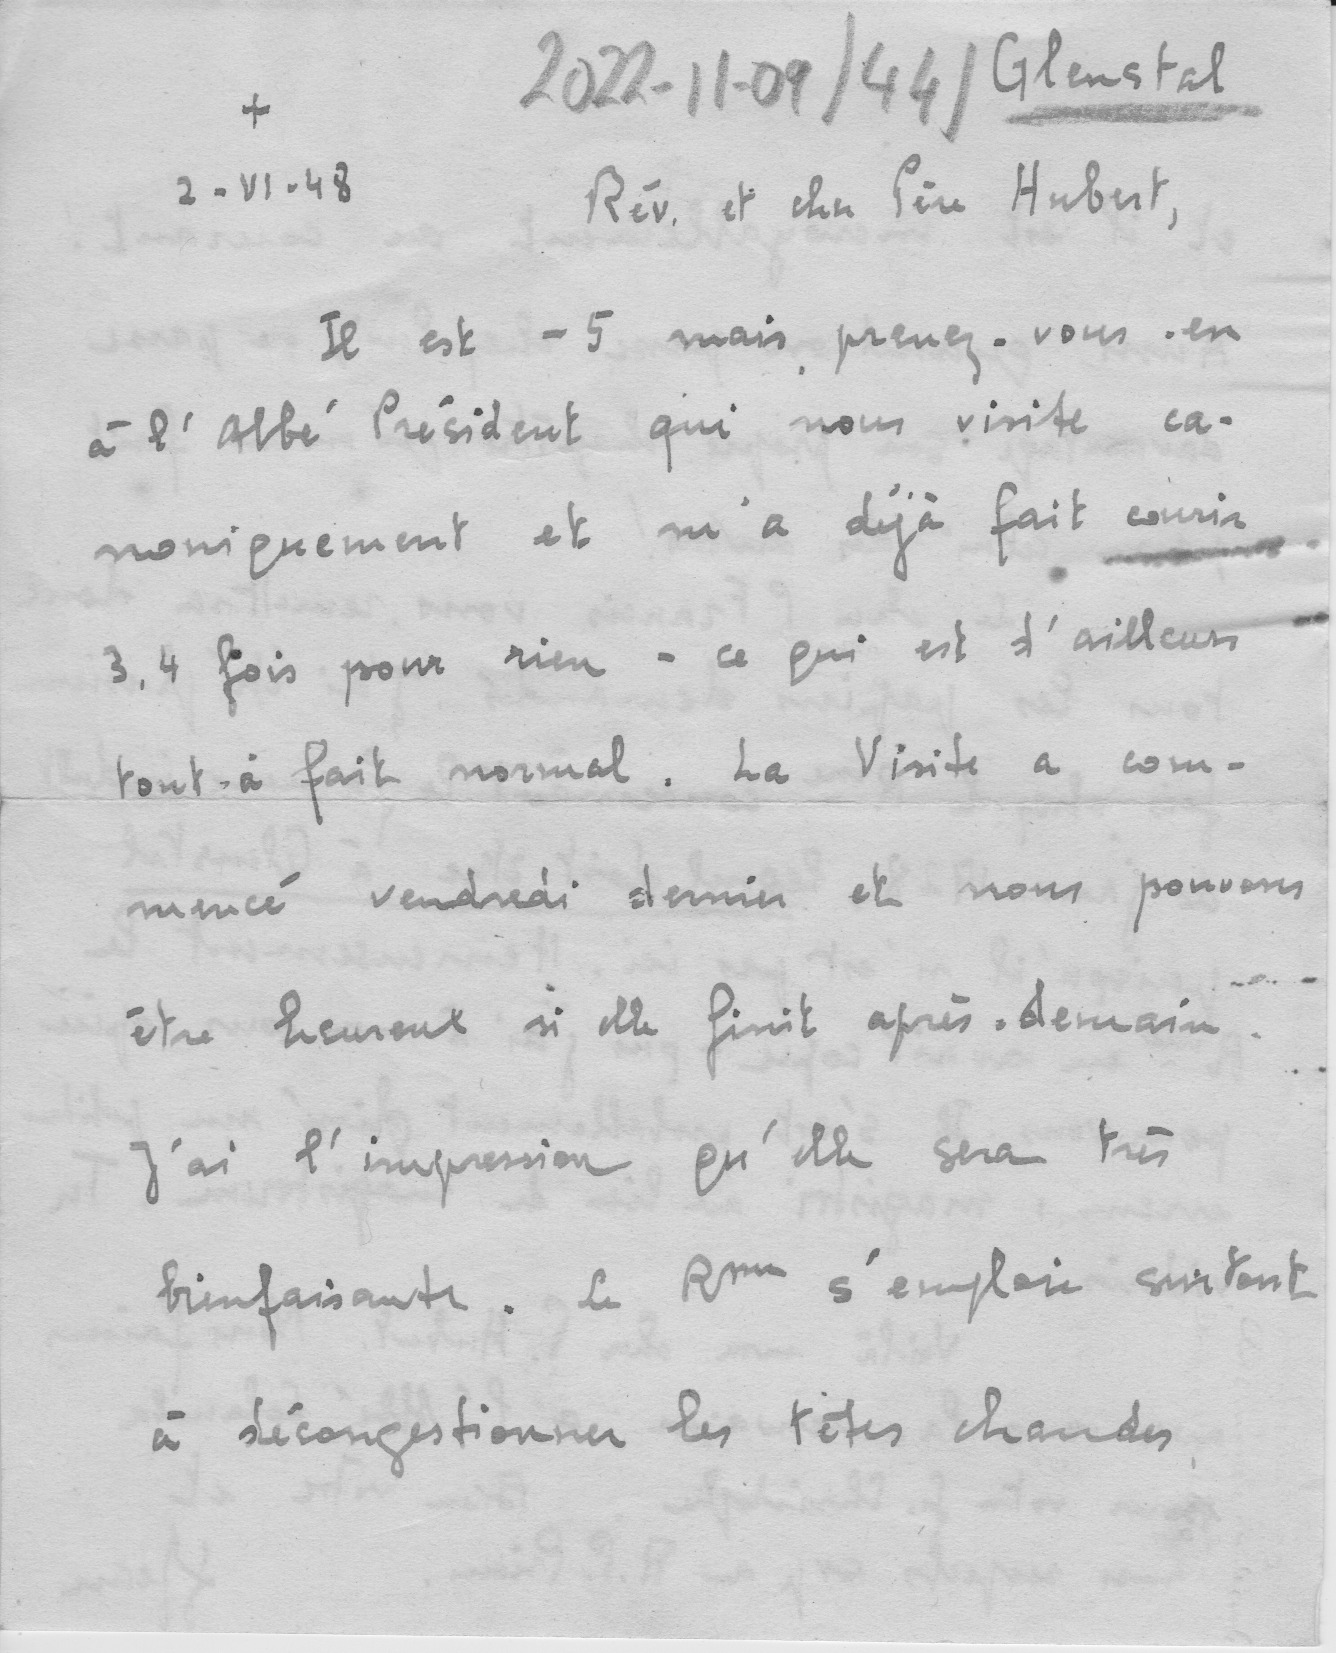 2022-11-09/44/ Glenstal
+
2-VI-48
Rév. et cher Père Hubert,
Il est -5 mais prenez-vous-en
à l'Abbé Président qui nous visite ca-
noniquement et m'a déjà fait courir
3,4 fois pour rien - ce qui est d'ailleurs
tout-à fait normal. La Visite a com-
mencé vendredi dernier et nous pouvons
être heureux si elle finit après-demain.
J'ai l'impression qu'elle sera très
bienfaisante. Le Rme s'emploie surtout
à décongestionner les têtes chaudes